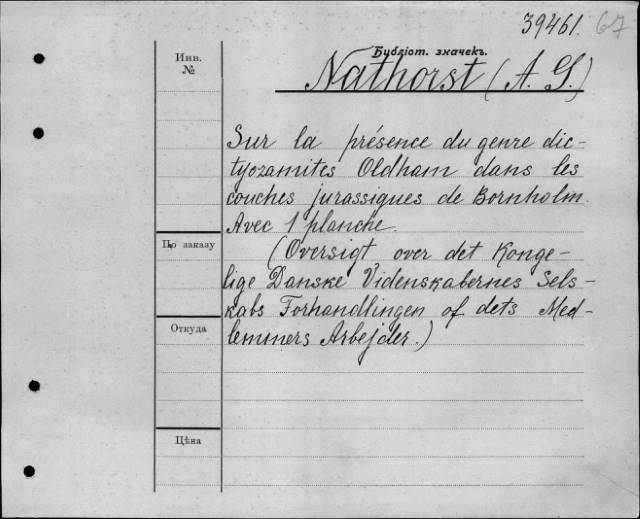 39461. 67
Бубліот. значекъ.
Инв.
№
Nathorst (A. G.)
Sur la présence du genre dic-
tyozamites Oldham dans les
couches jurassiques de Bornholm.
Avec 1 planche.
По заказу
(Oversigt over det Konge-
lige Danske Videnskabernes Sels-
kabs Forhandlingen of dets Med-
Откуда
lemmers Arbejder.)
Цѣна